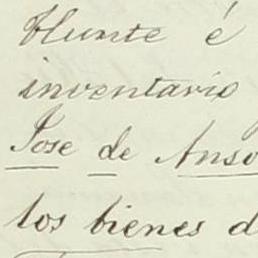 é
inventario
Jose de Anso
los bienes d